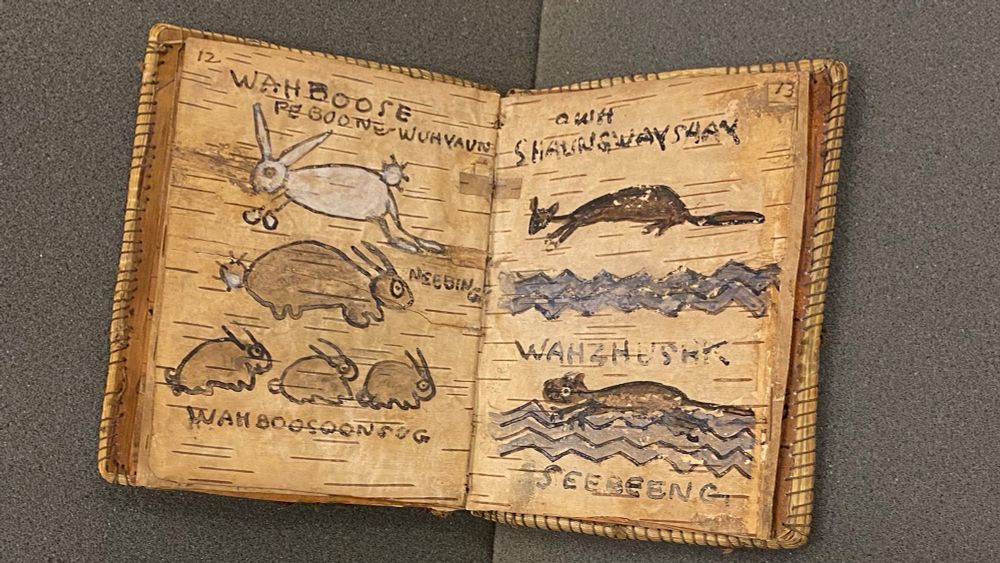 12
WAHBOOSE
PEBOONG WUHYAUN
NEEBING
WAHBOOSOONSUG
13
SHAUNGWAYSHAY
WAHZHUSHK
SEEBEENG